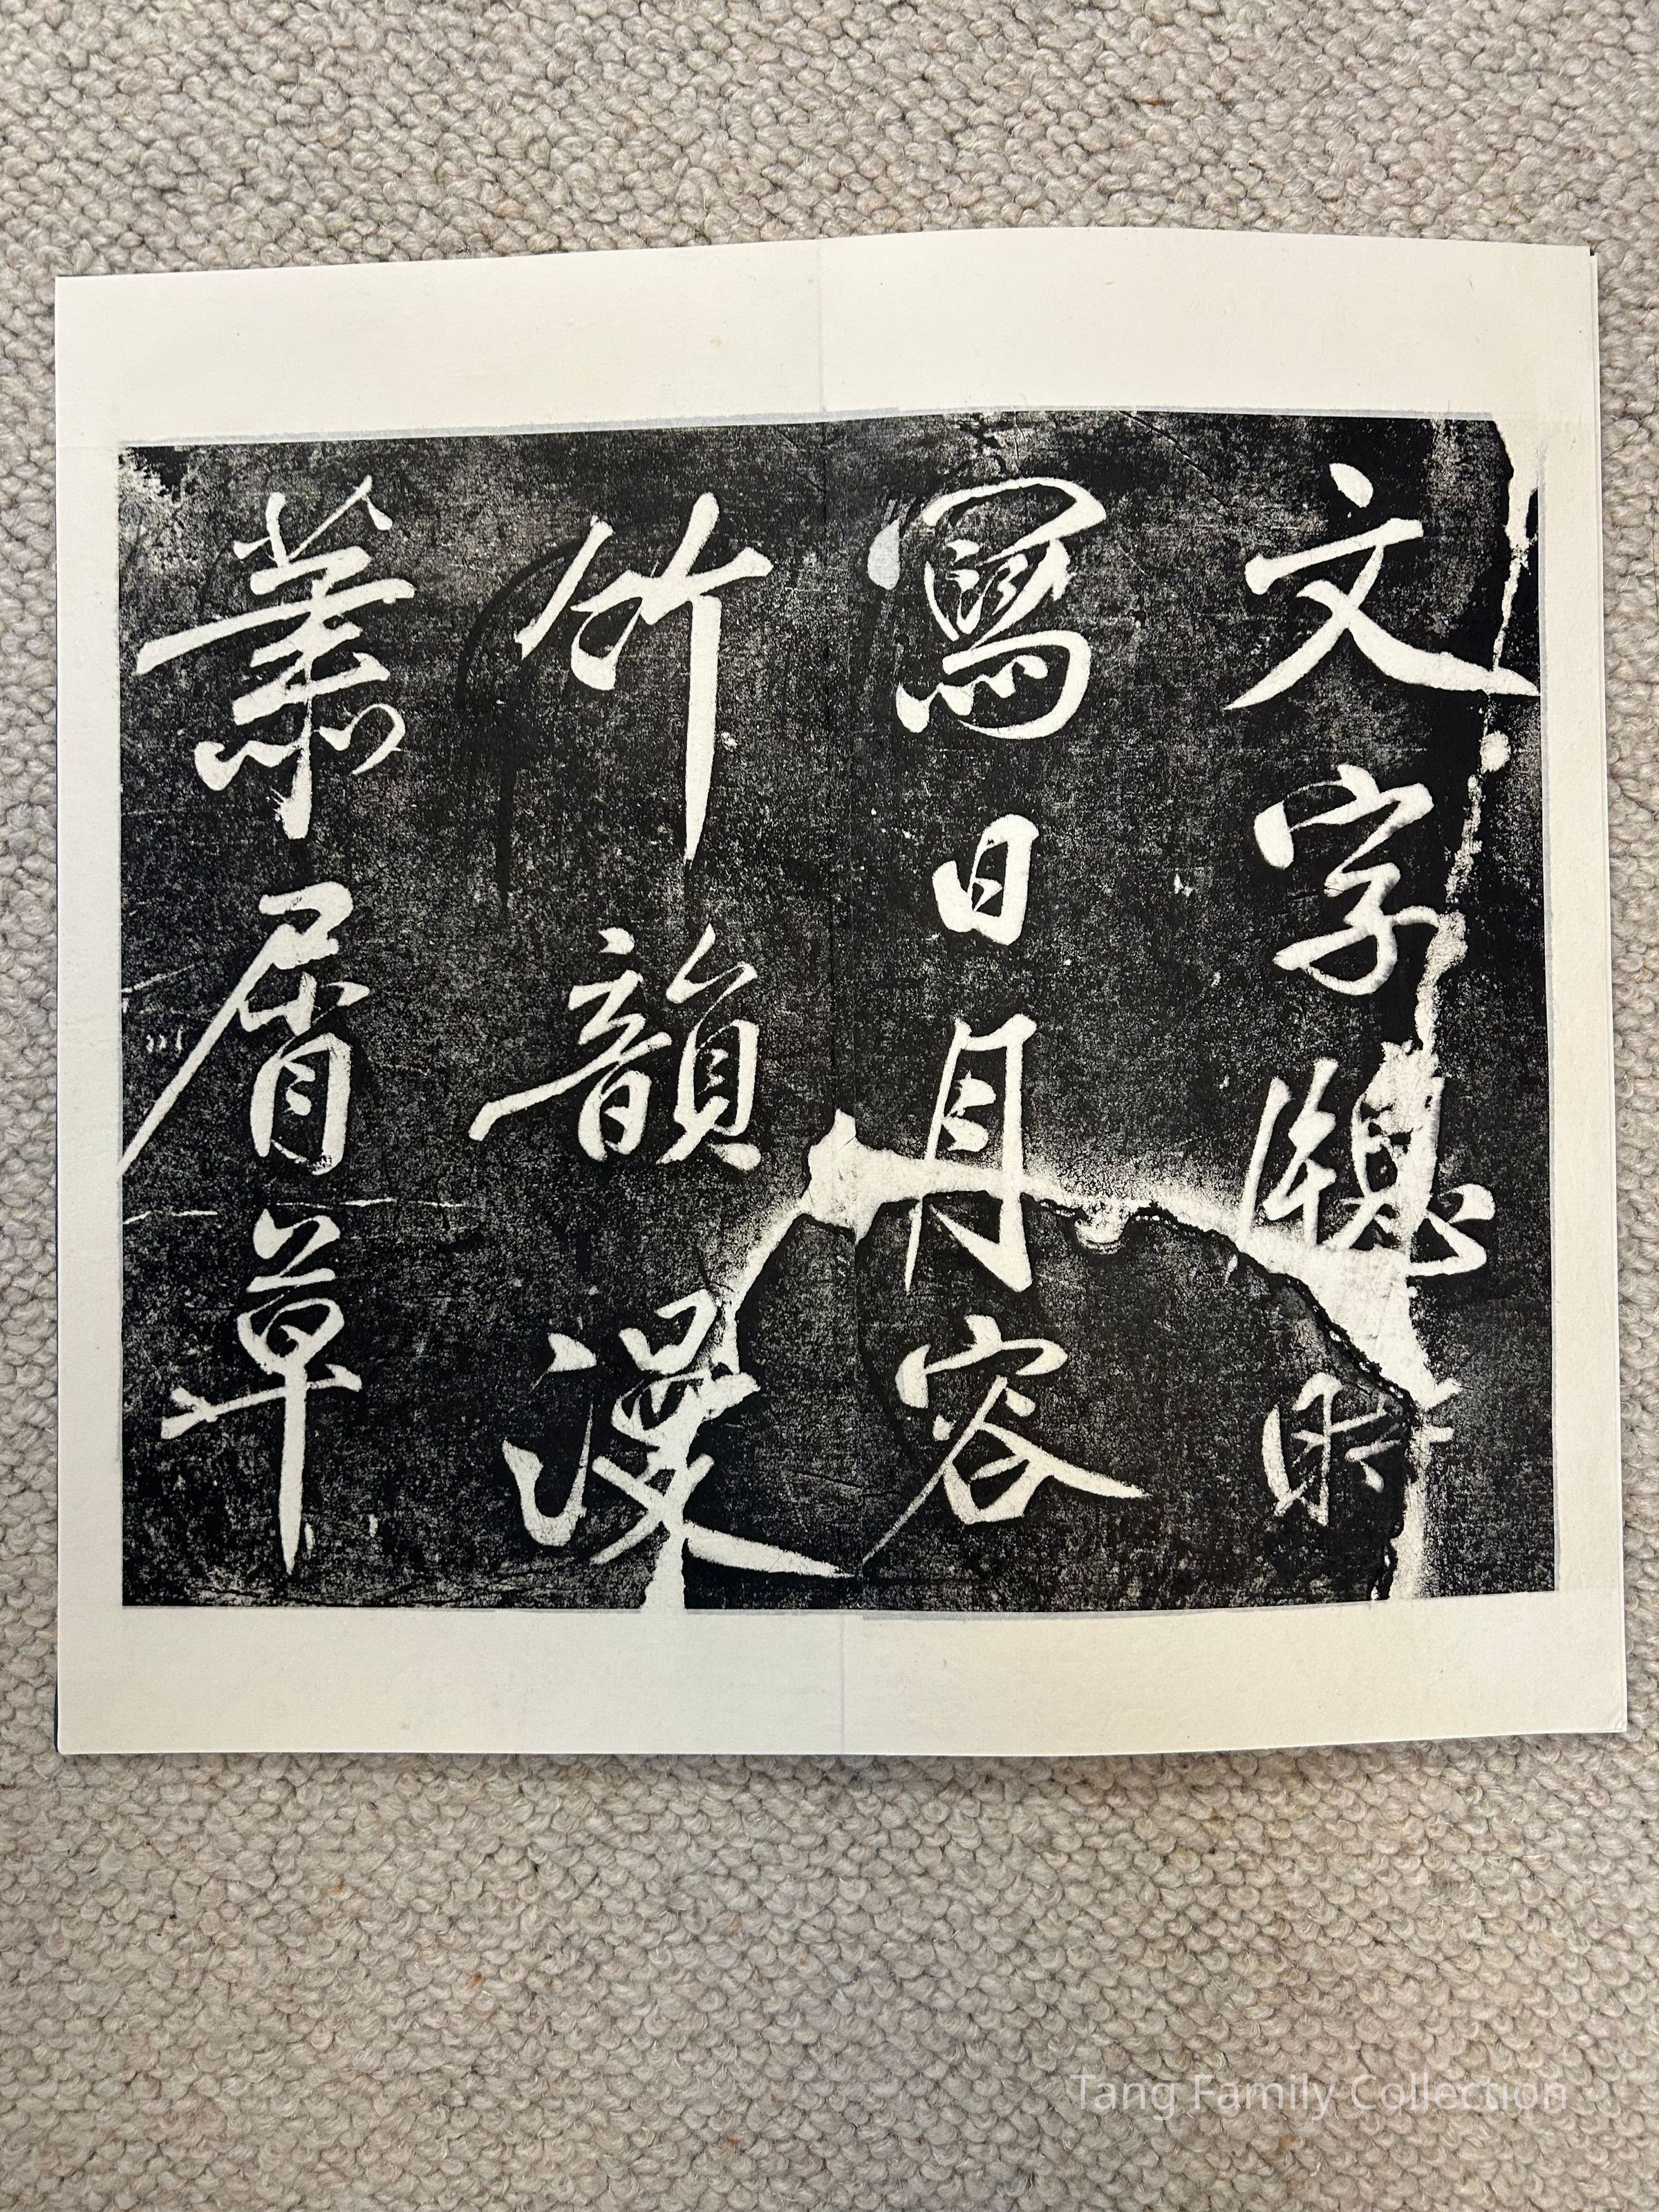 文字牕
寫日月容
竹韻漫
蕭屑草
Tang Family Collection